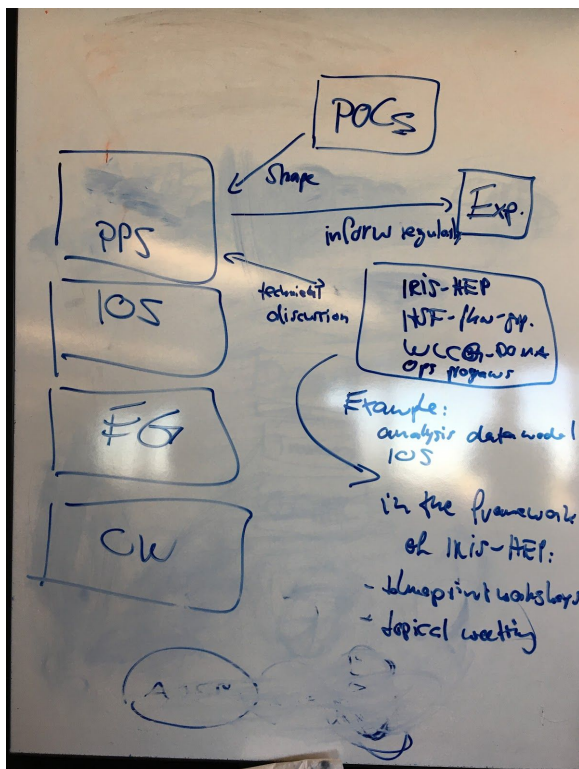 POCs
shape
PPS
Exp.
inform regularly
technical
discussion
IOS
IRIS-HEP
HSF-
WLCG-DOMA
Ops programs
EG
Example:
analysis data model
IOS
CW
in the framework
of IRIS-HEP:
- blueprint workshops
- topical meeting